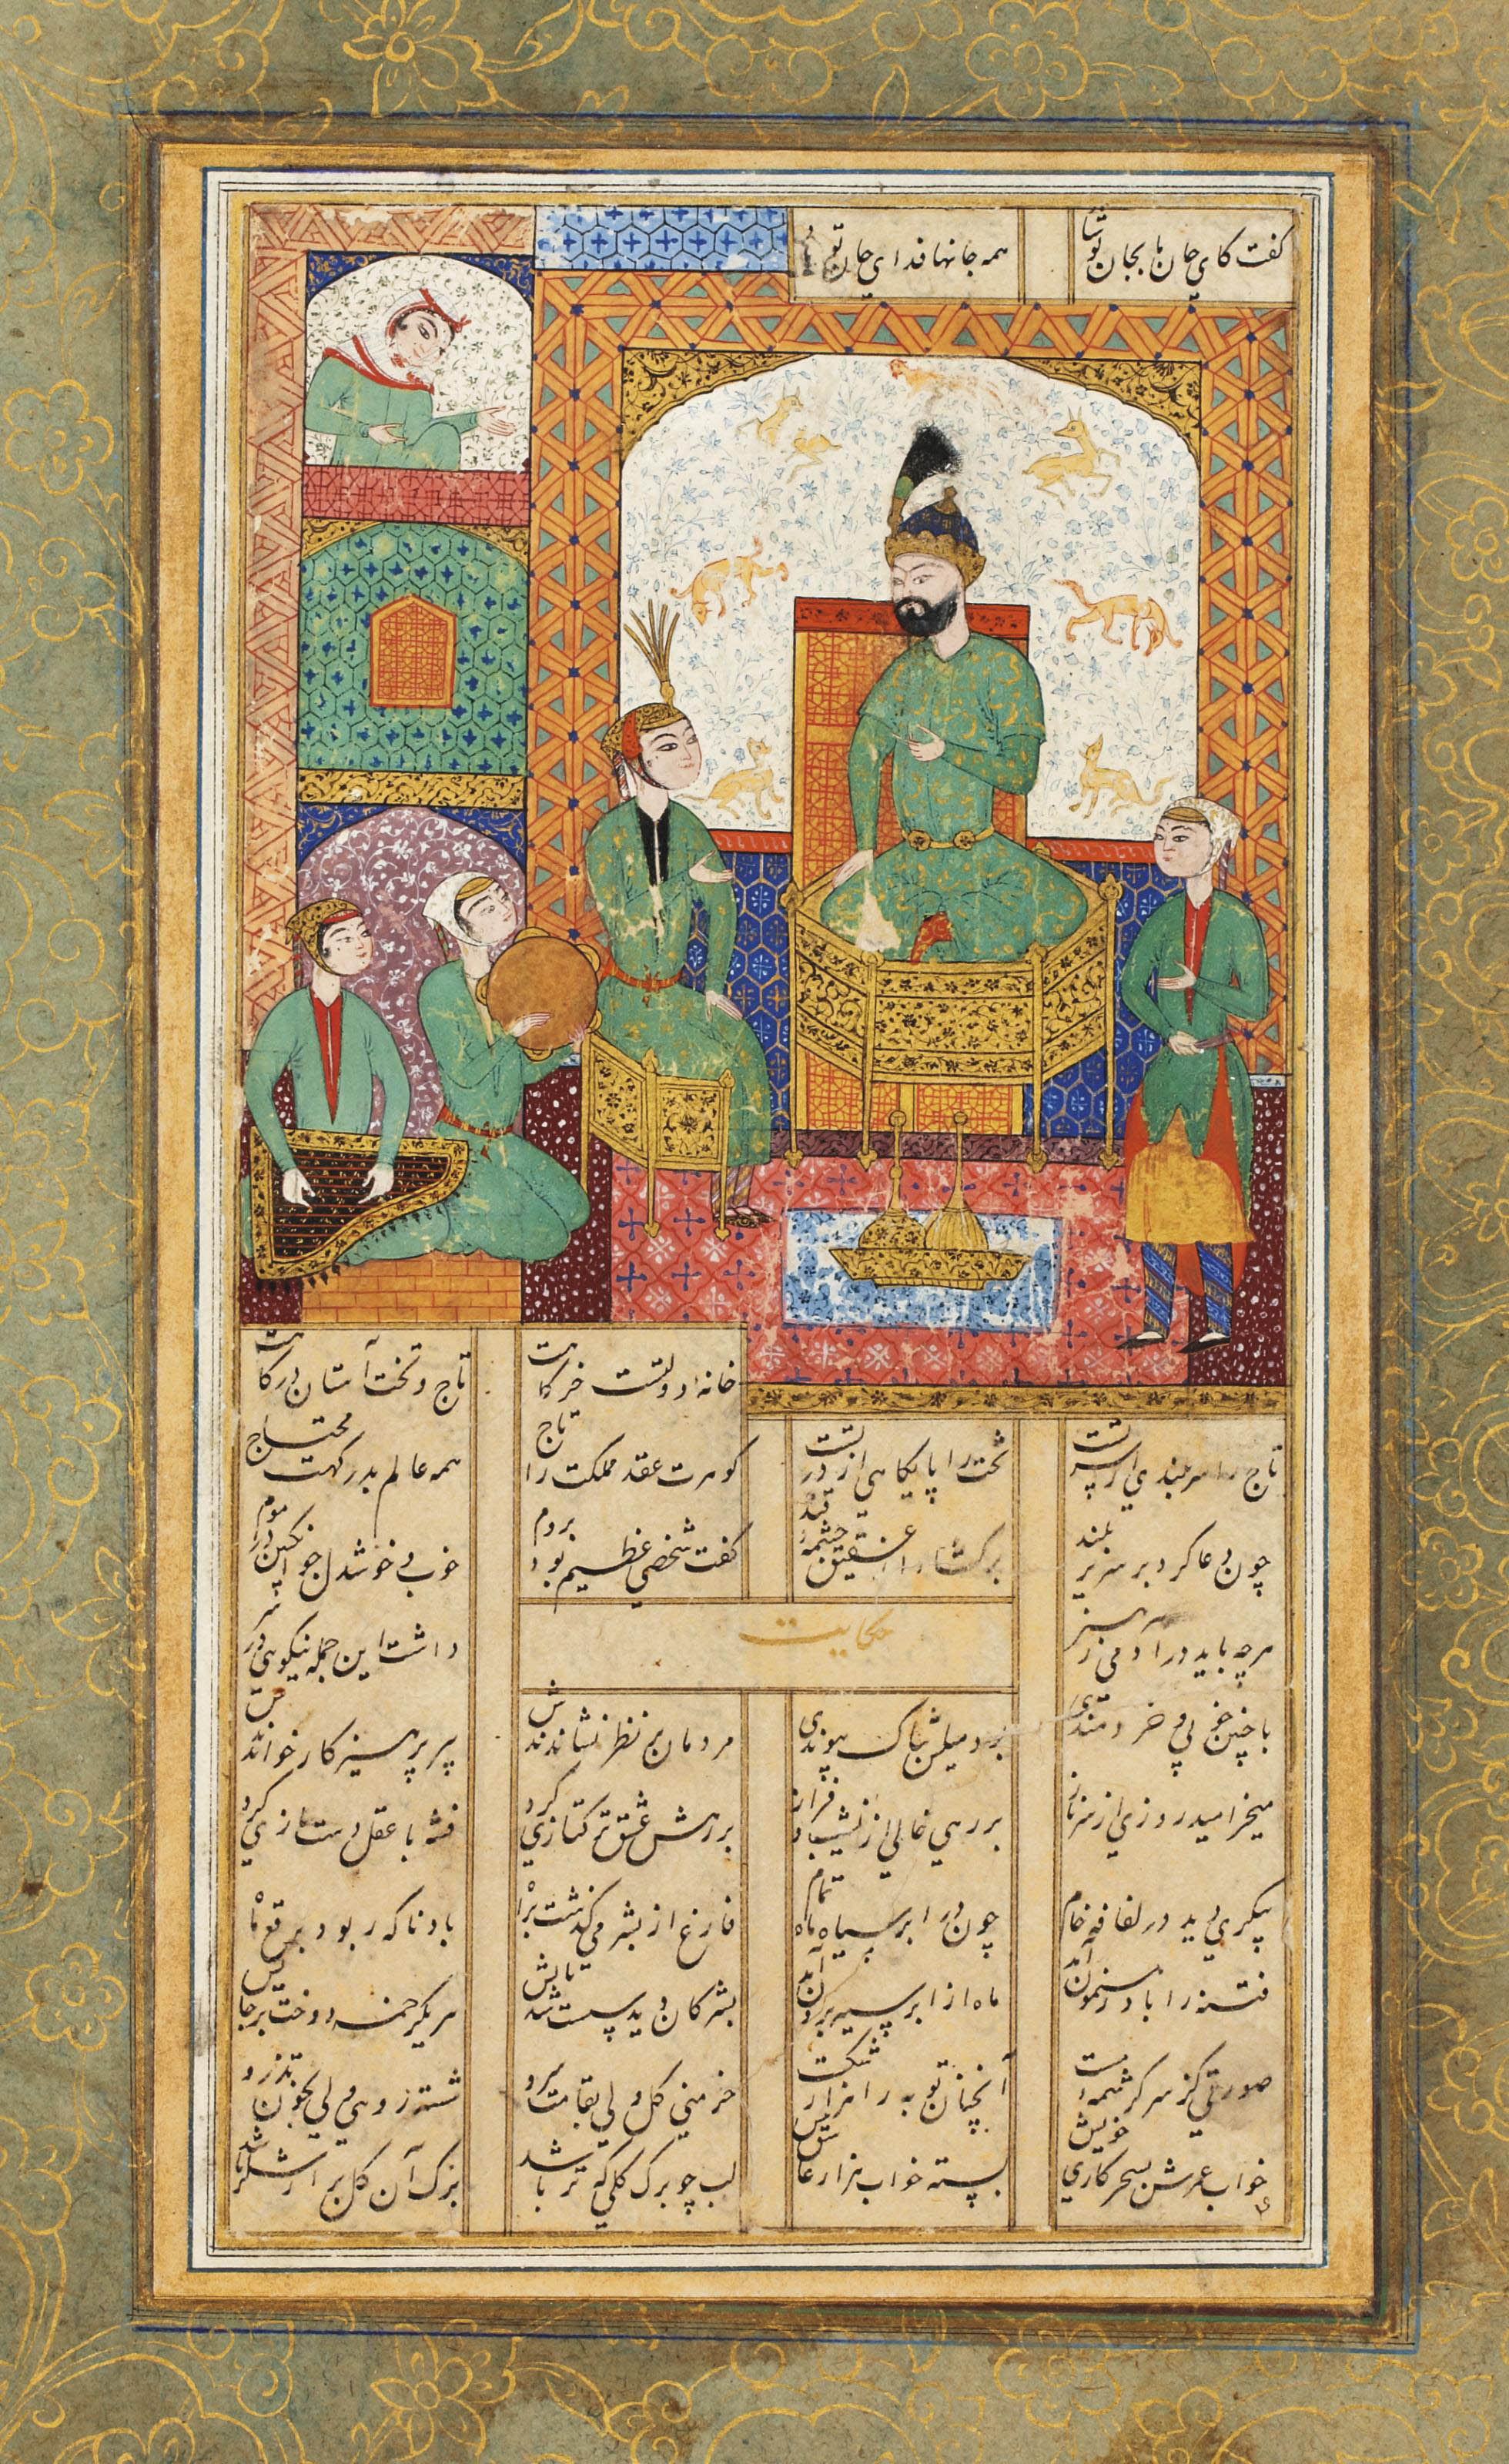 گفت کای جان ما بجان تو شاد
همه جانها فدای جان تو
خانه دولتست خرگاهت
تاج و تخت آستان درگاهت
تاج را سربلندی از سر تست
تخت را پایگاهی از در تست
گوهرت عقد مملکت را تاج
همه عالم بدرگهت محتاج
چون دعا کرد بر سریر بلند
برگشاد از عقیق چشمه قند
گفت شخصی عظیم بود بروم
خوب و خوشدل چو انگبین در موم
حکایت
هرچه باید در آدمی ز هنر
داشت این جمله نیکویی در سر
با چنین خوبی و خردمندی
بود میلش بپاک پیوندی
مردمان در نظر نشاندندش
پیر پرهیزکار خواندندش
میخرامید روزی از سر ناز
بر رهی خالی از نشیب و فراز
بر رهش عشق ترکتازی کرد
فتنه با عقل دست بازی کرد
پیکری دید در لفافه خام
چون در ابر سیاه ماه تمام
فارغ از بشر میگذشت براه
باد ناگه ربود برقع ماه
فتنه را باد رهنمون آمد
ماه از ابر سیه برون آمد
بشر کان دید سست شد پایش
تیر یک زخمه دوخت بر جایش
صورتی کز سر کرشمه مست
آنچنان توبه را هزار شکست
خرمنی گل ولی بقامت سرو
شسته رویی ولی بخون تذرو
خواب غمزش بسحرکاری خویش
بسته خواب هزار عاشق
لب چو برگ گلی که تر باشد
برگ آن گل پر از شکر باشد